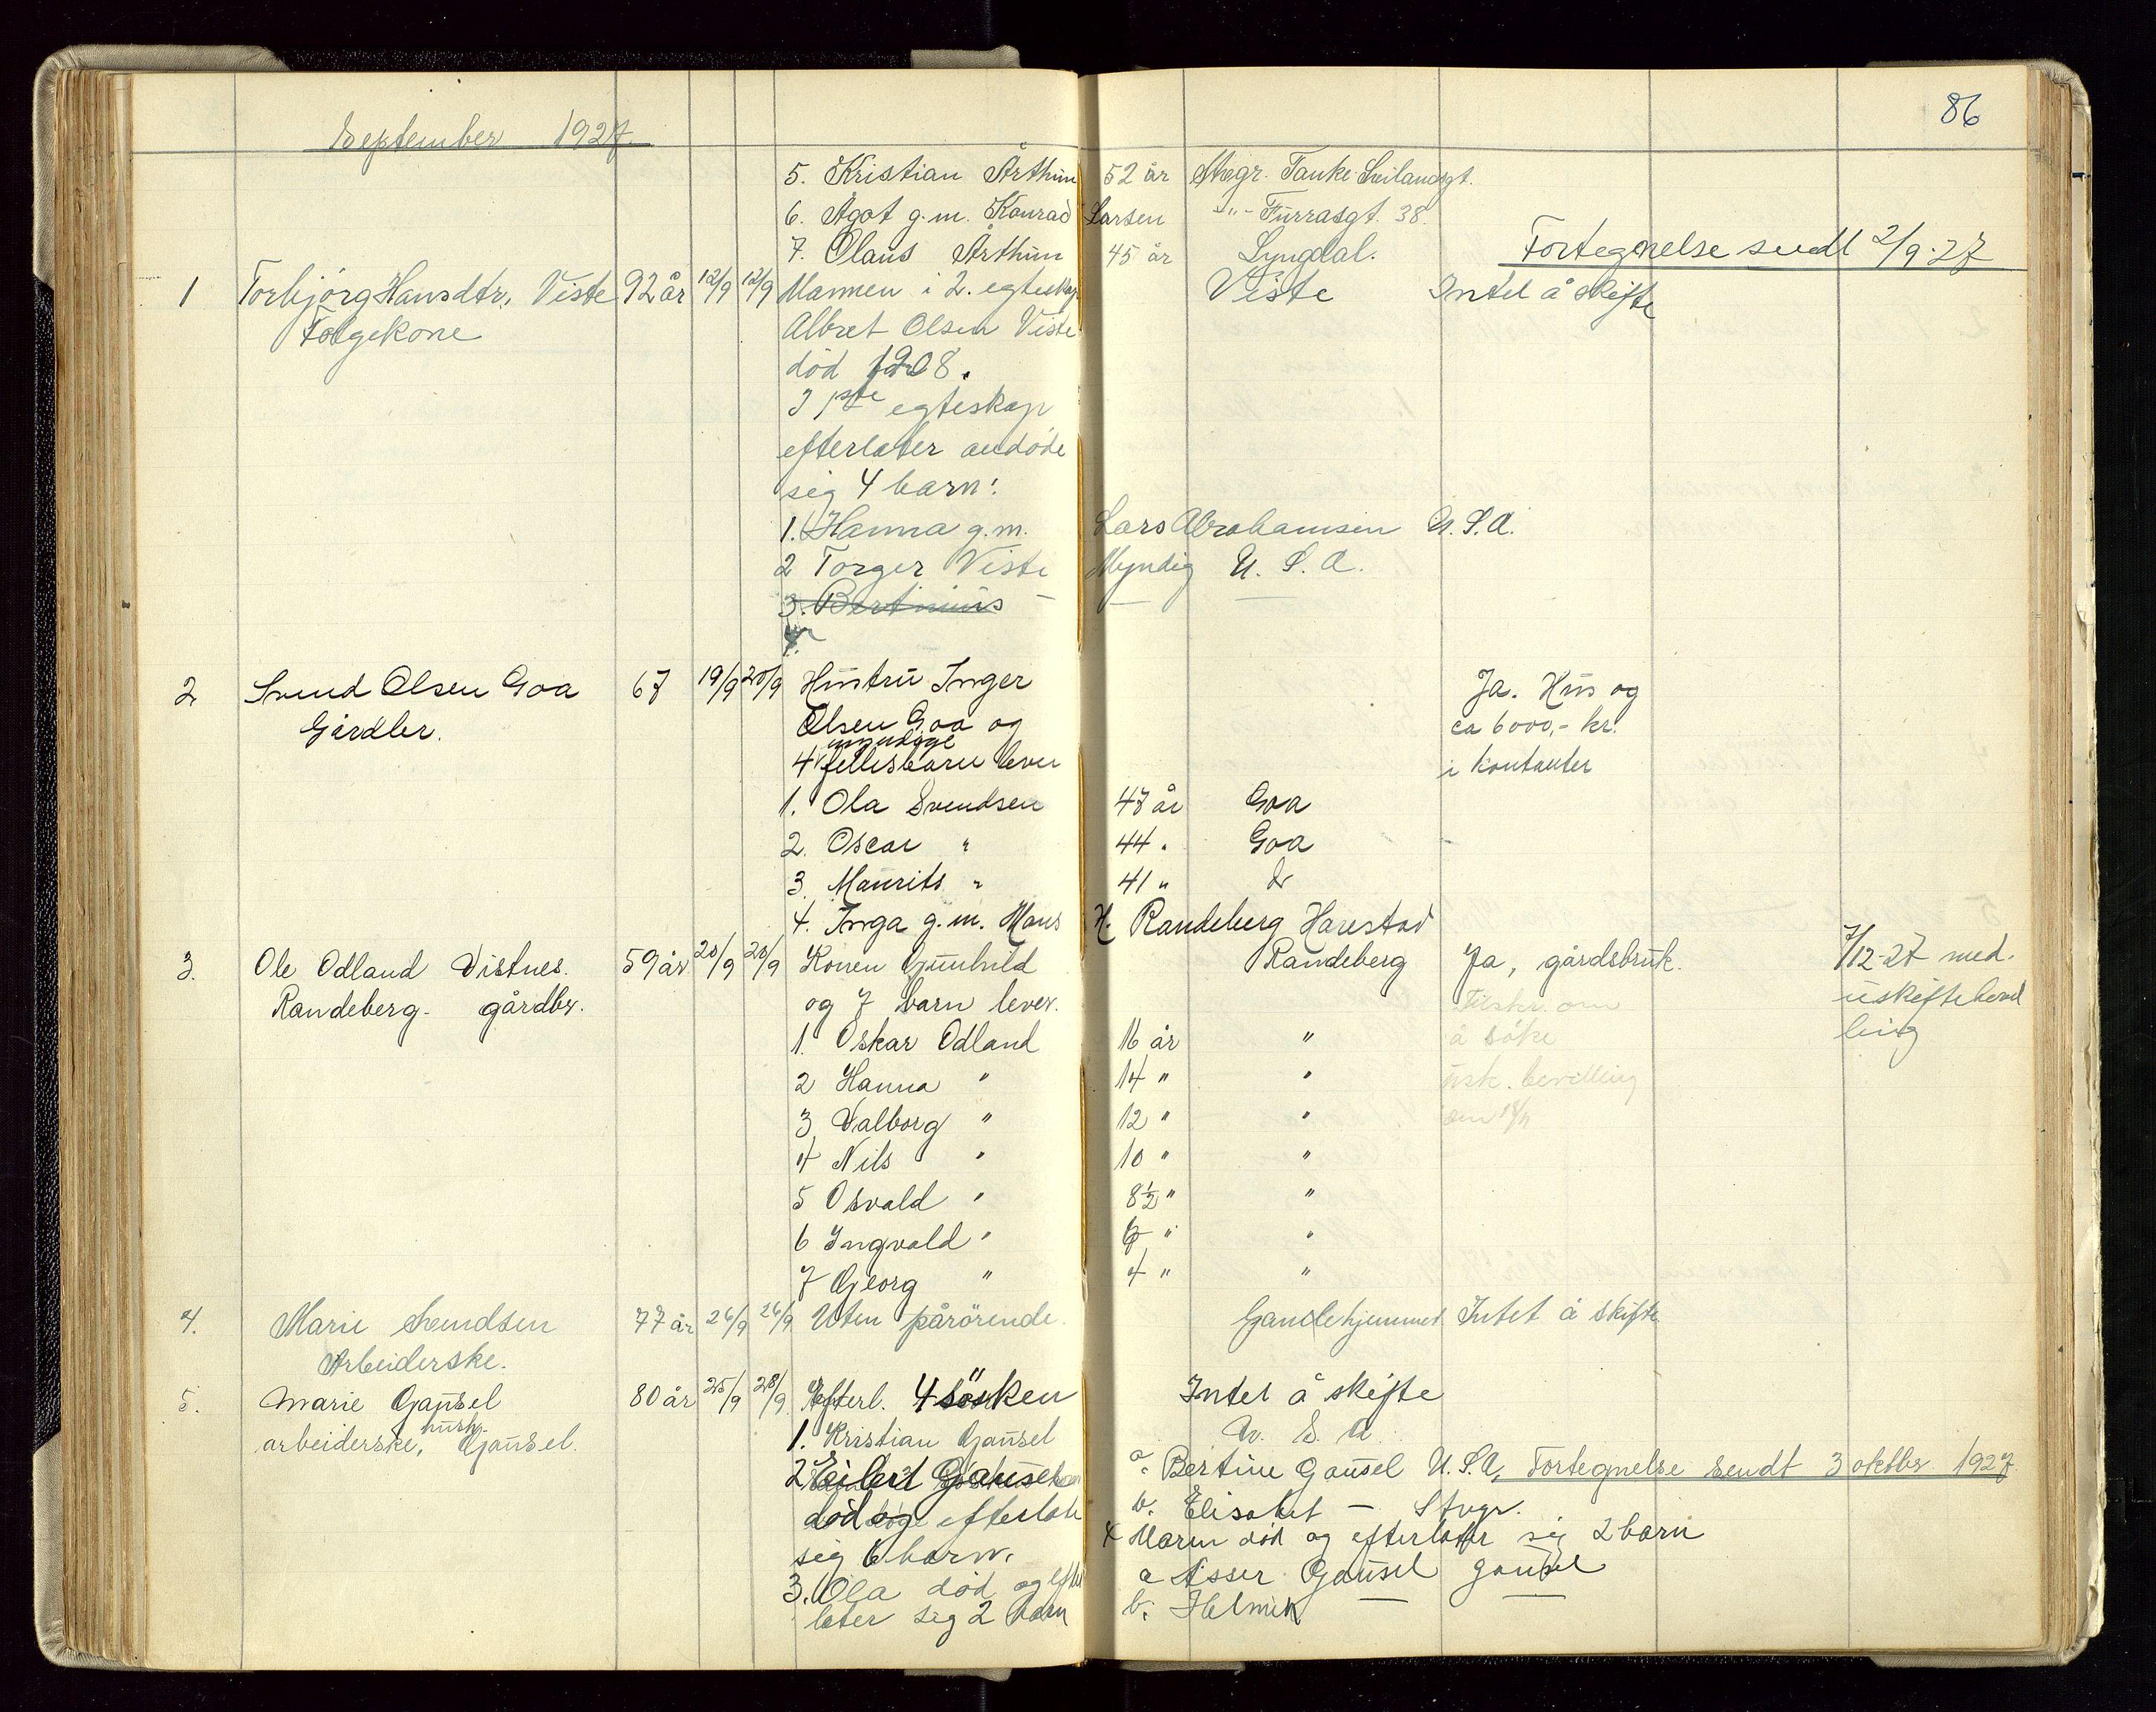 86
September 1927.
5. Kristian Årthun 52 år Stvgr. Tanke Svilandsgt.
6. Ågot g.m. Konrad Larsen -"- Furrasgt. 38.
7. Olaus Årthun 45 år Lyngdal.
Fortegnelse sendt 2/9-27
1 Torbjörg Hansdtr. Viste 92 år 12/9 12/9 Mannen i 2. egteskap Viste Intet å skifte
Folgekone Albret Olsen Viste
död 1908.
I 1ste egteskap
efterlater avdöde
sig 4 barn:
1. Hanna g.m. Lars Abrahamsen U.S.A.
2 Torger Viste Myndig U.S.A.
3. Bertinius — — —
4.
2 Svend Olsen Goa 67 19/9 20/9 Hustru Inger Ja. Hus og
Gårdbr. Olsen Goa og ca 6000,- kr.
myndige
4 fellesbarn lever i kontanter
1. Ola Svendsen 47 år Goa
2. Oscar " 44 " Goa
3 Maurits " 41 " do
4. Inga g.m. Hans H. Randeberg Harestad
3. Ole Odland Vistnes. 59 år 20/9 20/9 Konen Gunhild Randeberg Ja, gårdsbruk. 7/12-27 med.
Randeberg - gårdbr. og 7 barn lever. Tilskr. om uskiftebevil
1. Oskar Odland 16 år " å söke ling
2 Hanna " 14 " " usk. bevilling
3 Valborg " 12 " "
4 Nils " 10 " "
5 Osvald " 8½ " "
6 Ingvald " 6 " "
7 Georg " 4 " "
4. Marie Svendsen 77 år 26/9 26/9 Uten pårörende. Gamlehjemmet Intet å skifte
Arbeiderske.
5. Marie Gausel 80 år 25/9 28/9 Efterl. 4 sösken Intet å skifte
hush.
arbeiderske, Gausel. 1. Kristian Gausel U.S.A
2 Eilert Gausel a. Bertine Gausel U.S.A, Fortegnelse sendt 3 oktbr 1927
död og efterlater b. Elisabet — Stvgr.
sig 6 barn. 4 Maren död og efterlater sig 2 barn
3. Ola död og efter a Asser Gausel Gausel
later sig 2 barn b. Helmik — —